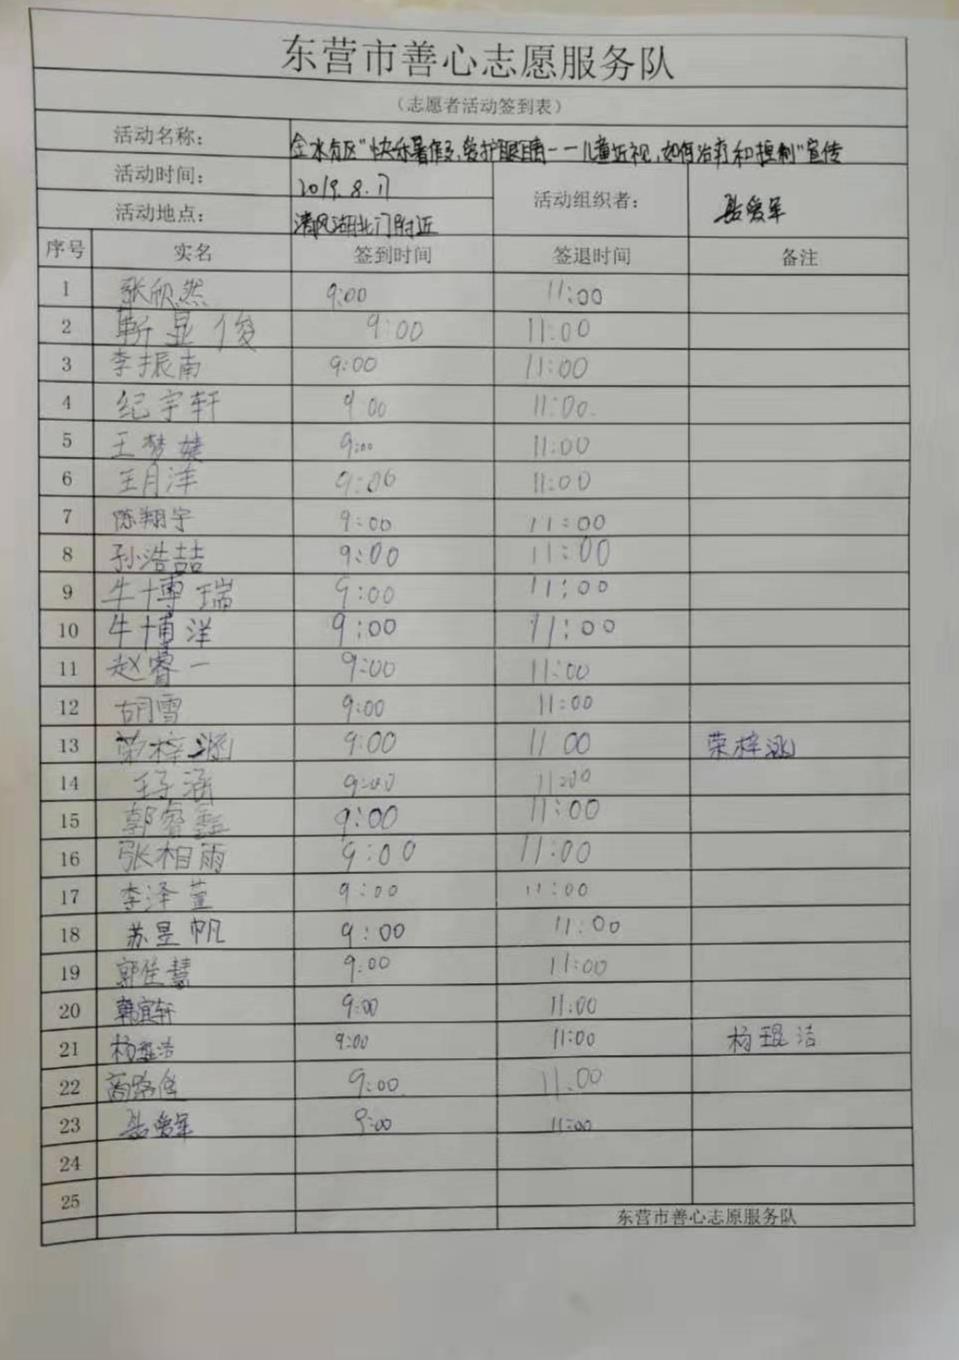 东营市善心志愿服务队
（志愿者活动签到表）
活动名称： 金水育区“快乐暑假, 爱护眼睛——儿童近视, 如何治疗和控制”宣传
活动时间： 2019.8.17 活动组织者： 爱军
活动地点： 清风湖北门附近
序号 实名 签到时间 签退时间 备注
1 张欣然 9:00 11:00
2 靳显俊 9:00 11:00
3 李振南 9:00 11:00
4 纪宇轩 9:00 11:00
5 王梦婕 9:00 11:00
6 王月洋 9:00 11:00
7 陈翔宇 9:00 11:00
8 孙浩喆 9:00 11:00
9 牛博瑞 9:00 11:00
10 牛博洋 9:00 11:00
11 赵睿一 9:00 11:00
12 胡雪 9:00 11:00
13 荣梓涵 9:00 11 00 荣梓涵
14 王子涵 9:00 11:00
15 郭睿鑫 9:00 11:00
16 张相雨 9:00 11:00
17 李泽萱 9:00 11:00
18 苏昱帆 9:00 11:00
19 郭佳慧 9:00 11:00
20 韩宜轩 9:00 11:00
21 杨琨洁 9:00 11:00 杨琨洁
22 路 9:00 11:00
23 爱军 9:00 11:00
24
25
东营市善心志原服务队